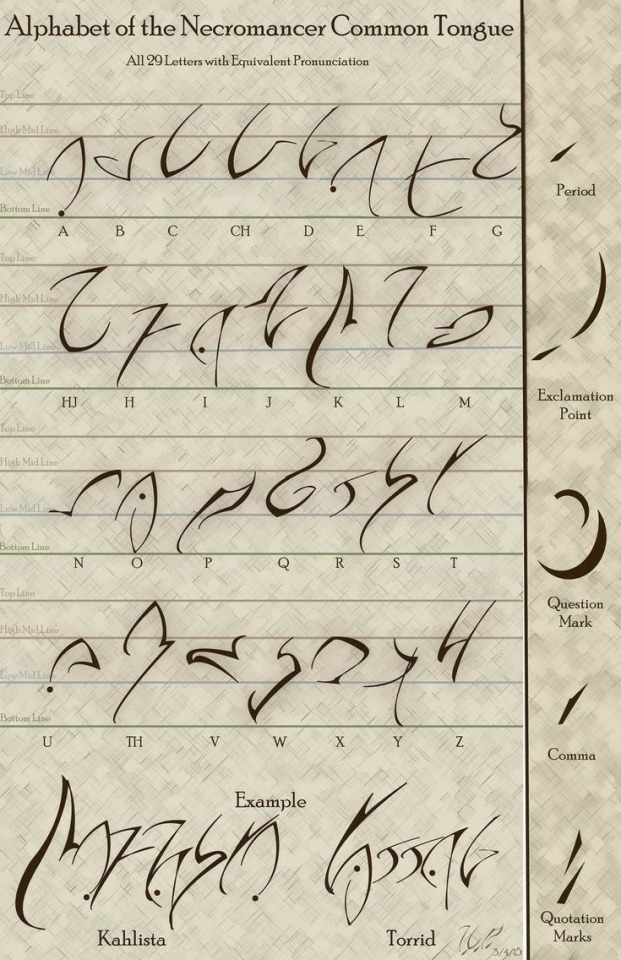 Alphabet of the Necromancer Common Tongue
All 29 Letters with Equivalent Pronunciation
Top Line
High Mid Line
Low Mid Line
Bottom Line
A B C CH D E F G
Top Line
High Mid Line
Low Mid Line
Bottom Line
HJ H I J K L M
Top Line
High Mid Line
Low Mid Line
Bottom Line
N O P Q R S T
Top Line
High Mid Line
Low Mid Line
Bottom Line
U TH V W X Y Z
Example
Kahlista Torrid
3/4/15
Period
Exclamation
Point
Question
Mark
Comma
Quotation
Marks